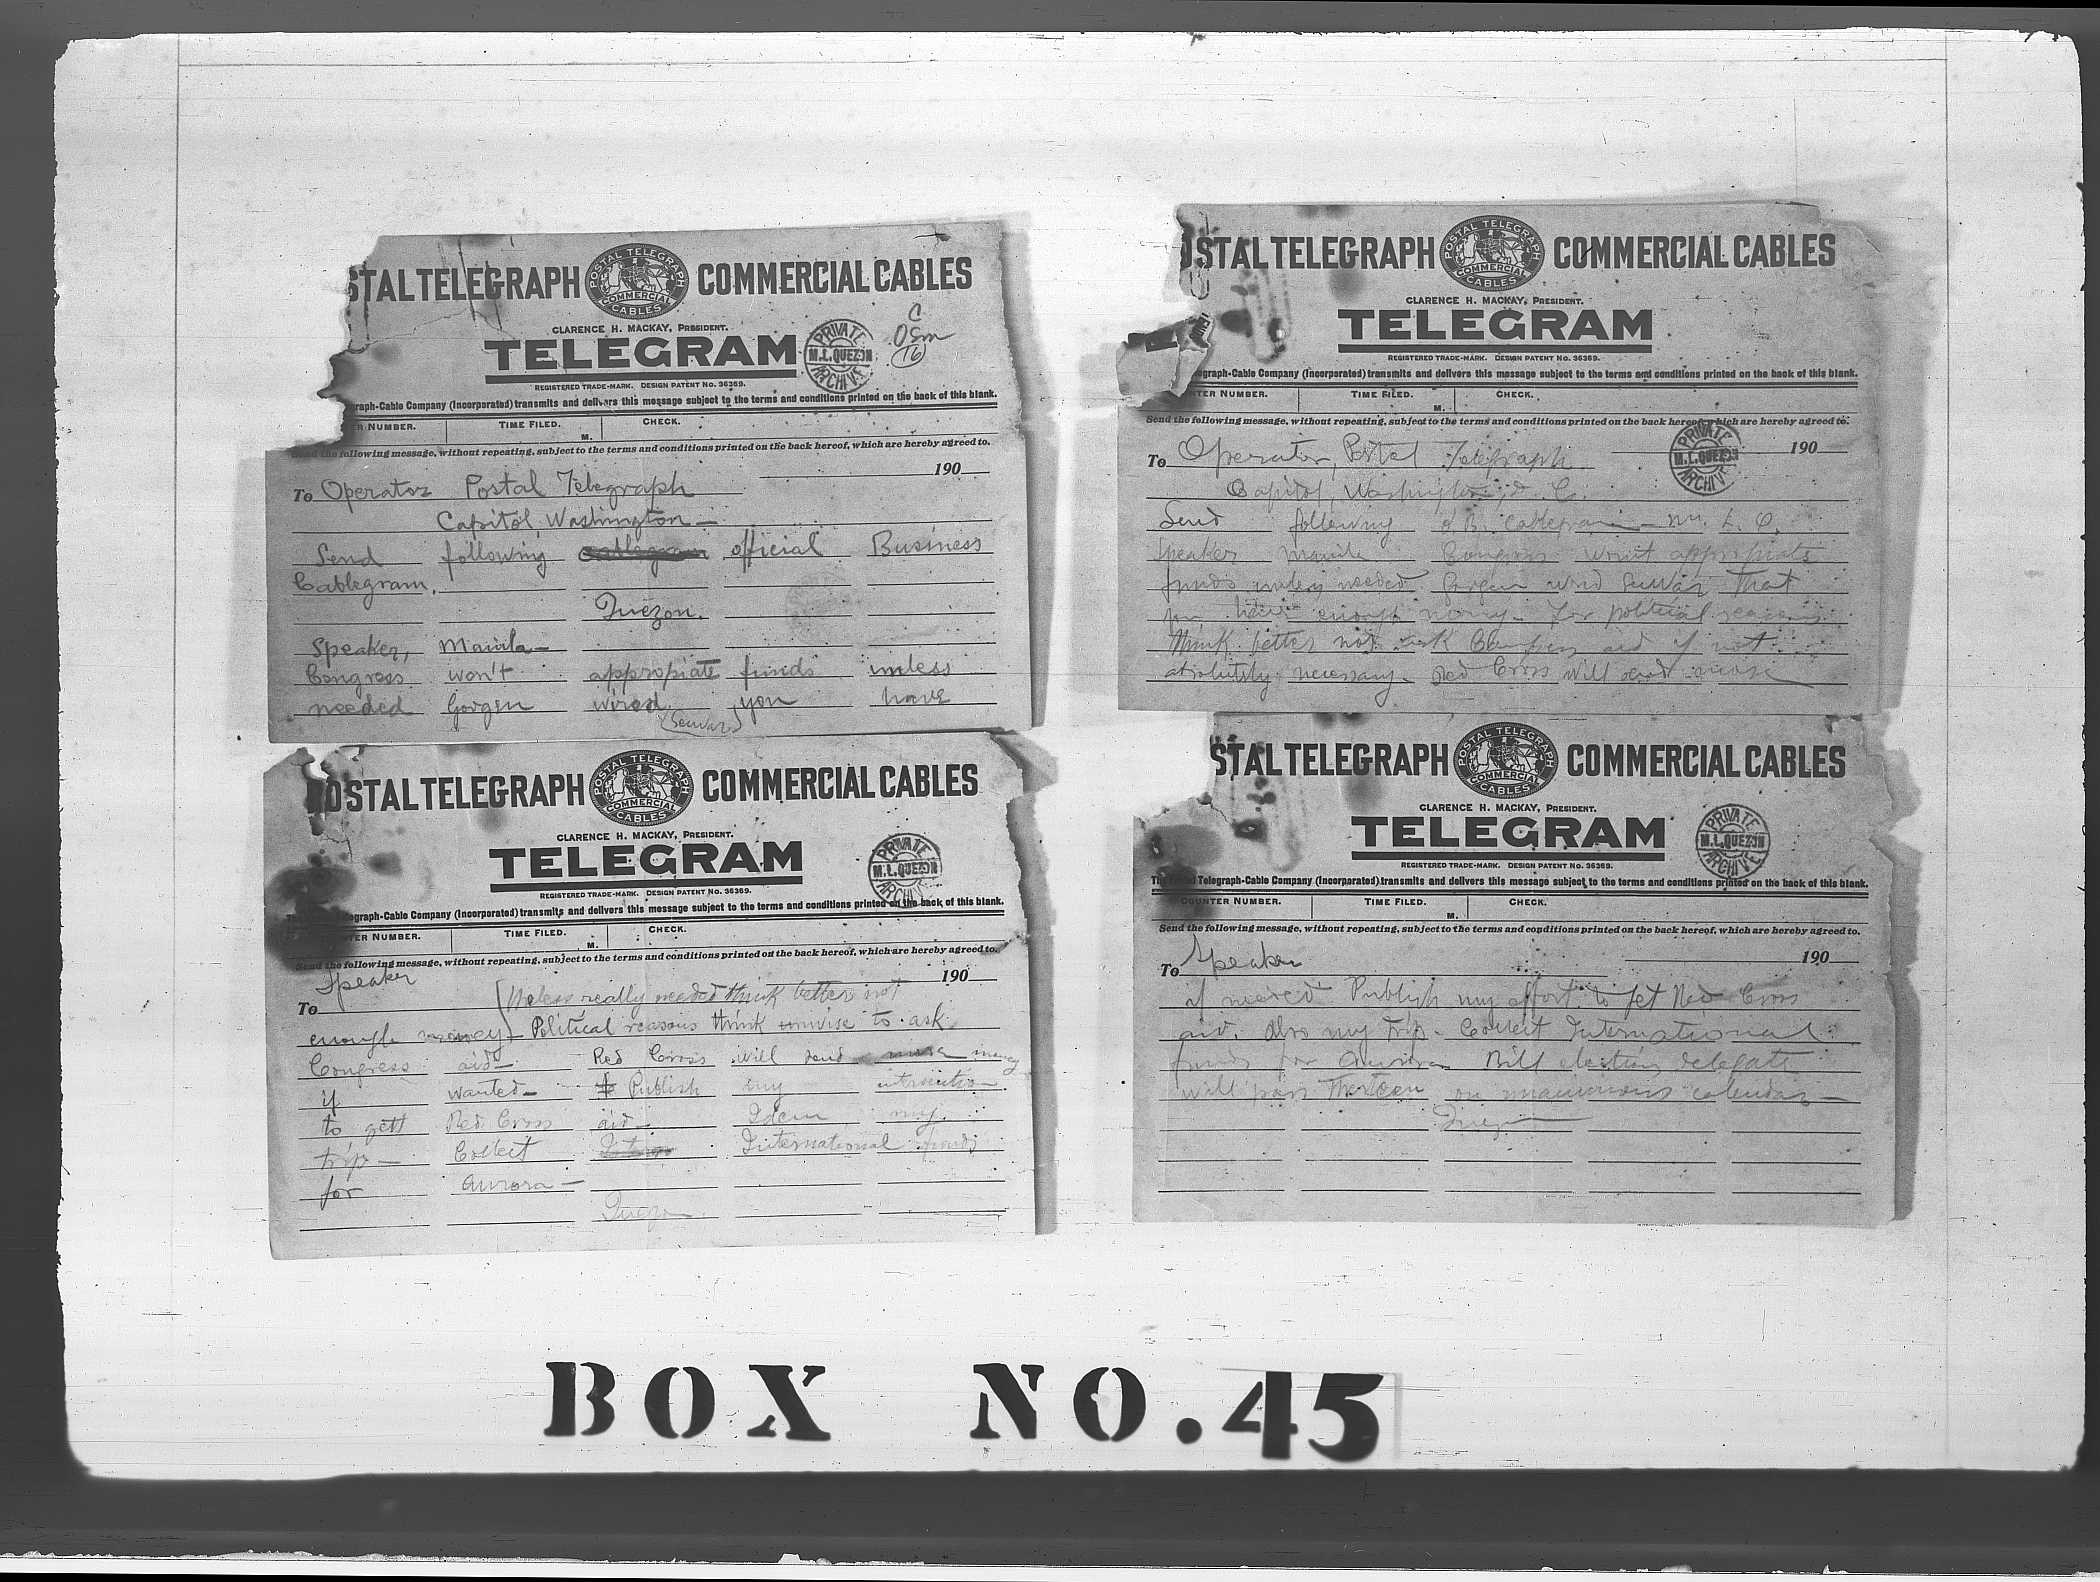 STAL TELEGRAPH COMMERCIAL CABLES
POSTAL TELEGRAPH COMMERCIAL CABLES
CLARENCE H. MACKAY, PRESIDENT.
TELEGRAM
PRIVATE M.L.QUEZON ARCHIVE
C
OSm
16
REGISTERED TRADE-MARK. DESIGN PATENT No. 36369.
raph-Cable Company (Incorporated) transmits and delivers this message subject to the terms and conditions printed on the back of this blank.
R NUMBER. TIME FILED. M. CHECK.
Send the following message, without repeating, subject to the terms and conditions printed on the back hereof, which are hereby agreed to.
190
To Operator Postal Telegraph
Capitol, Washington —
Send following cablegram official Business
Cablegram.
Quezon.
Speaker, Manila —
Congress won't appropiate funds unless
needed Gorgen wired you have
OSTAL TELEGRAPH COMMERCIAL CABLES
POSTAL TELEGRAPH COMMERCIAL CABLES
CLARENCE H. MACKAY, PRESIDENT.
TELEGRAM
PRIVATE M.L.QUEZON ARCHIVE
REGISTERED TRADE-MARK. DESIGN PATENT No. 36369.
egraph-Cable Company (Incorporated) transmits and delivers this message subject to the terms and conditions printed on the back of this blank.
TER NUMBER. TIME FILED. M. CHECK.
Send the following message, without repeating, subject to the terms and conditions printed on the back hereof, which are hereby agreed to.
Speaker 190
To [Unless really needed think better not
enough money — Political reasons think unwise to ask
Congress aid — Red Cross will send more money
if wanted — Publish my
to gett Red Cross aid — Idem my
trip — Collect International funds
for Aurora —
Quezon.
OSTAL TELEGRAPH COMMERCIAL CABLES
POSTAL TELEGRAPH COMMERCIAL CABLES
CLARENCE H. MACKAY, PRESIDENT.
TELEGRAM
REGISTERED TRADE-MARK. DESIGN PATENT No. 36369.
egraph-Cable Company (Incorporated) transmits and delivers this message subject to the terms and conditions printed on the back of this blank.
TER NUMBER. TIME FILED. M. CHECK.
Send the following message, without repeating, subject to the terms and conditions printed on the back hereof, which are hereby agreed to.
PRIVATE M.L.QUEZON ARCHIVE
190
To Operator, Postal Telegraph
Capitol, Washington, D. C.
Send following O B. Cablegram — M. L. Q.
Speaker Manila Congress won't appropiate
funds unless needed Gorgen and that
you have enough money — For political reasons
think better not ask Congress aid if not
absolutely necessary — Red Cross will send more
STAL TELEGRAPH COMMERCIAL CABLES
POSTAL TELEGRAPH COMMERCIAL CABLES
CLARENCE H. MACKAY, PRESIDENT.
TELEGRAM
PRIVATE M.L.QUEZON ARCHIVE
REGISTERED TRADE-MARK. DESIGN PATENT No. 36369.
The Postal Telegraph-Cable Company (Incorporated) transmits and delivers this message subject to the terms and conditions printed on the back of this blank.
COUNTER NUMBER. TIME FILED. M. CHECK.
Send the following message, without repeating, subject to the terms and conditions printed on the back hereof, which are hereby agreed to.
190
To Speaker
if needed Publish my effort to get Red Cross
aid. Also my trip — Collect International
funds for Aurora — Bill electing delegate
will pass thirteen on unanimous calendar —
Quezon
BOX NO. 45